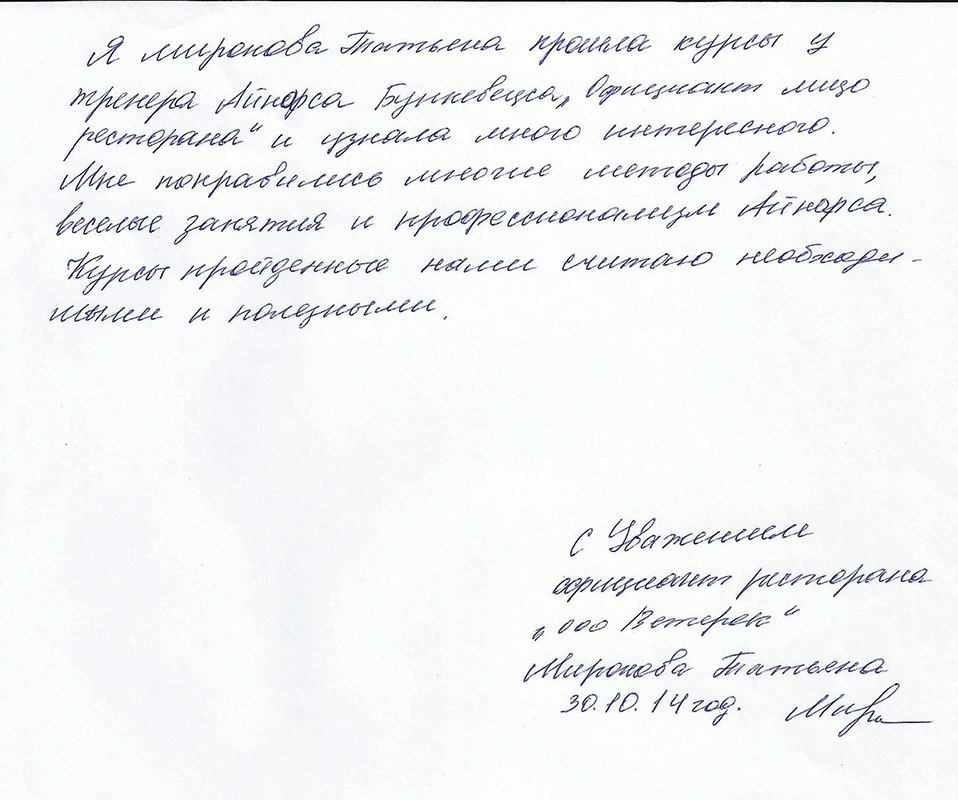 Я Миронова Татьяна прошла курсы у
тренера Айнарса Бункевецса „Официант лицо
ресторана“ и узнала много интересного.
Мне понравились многие методы работы,
веселые занятия и профессионализм Айнарса.
Курсы пройденные нами считаю необходи-
мыми и полезными.
С Уважением
официант ресторана
„ООО Ветерок“
Миронова Татьяна
30.10.14 год.